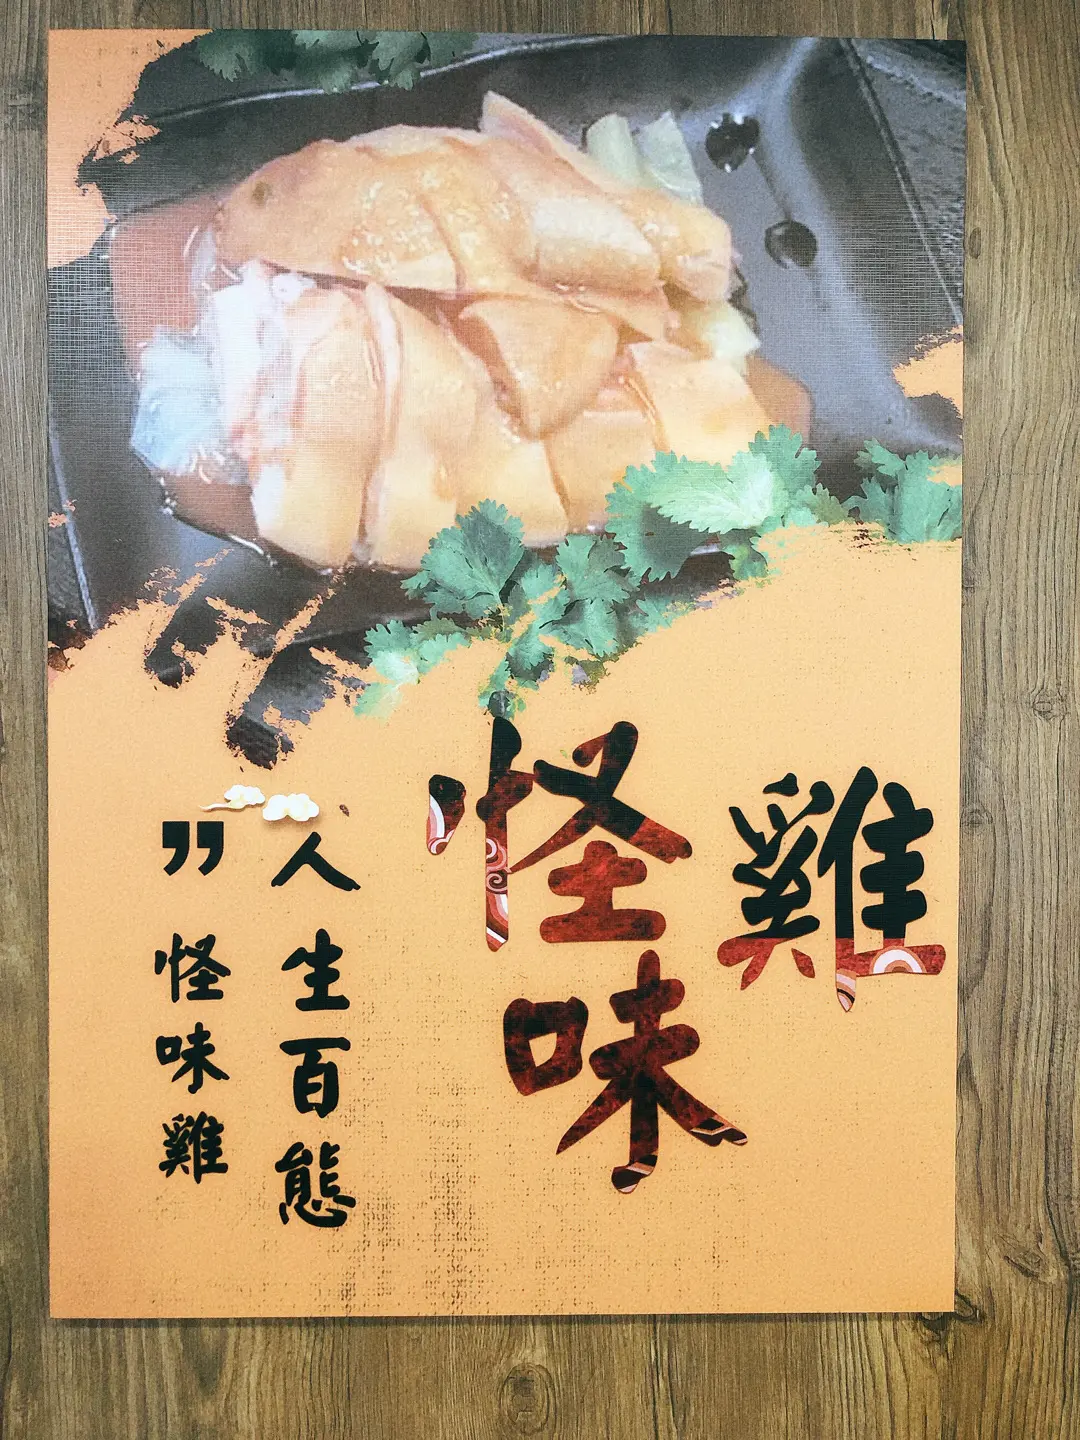 怪味
雞
人生百態
"怪味雞